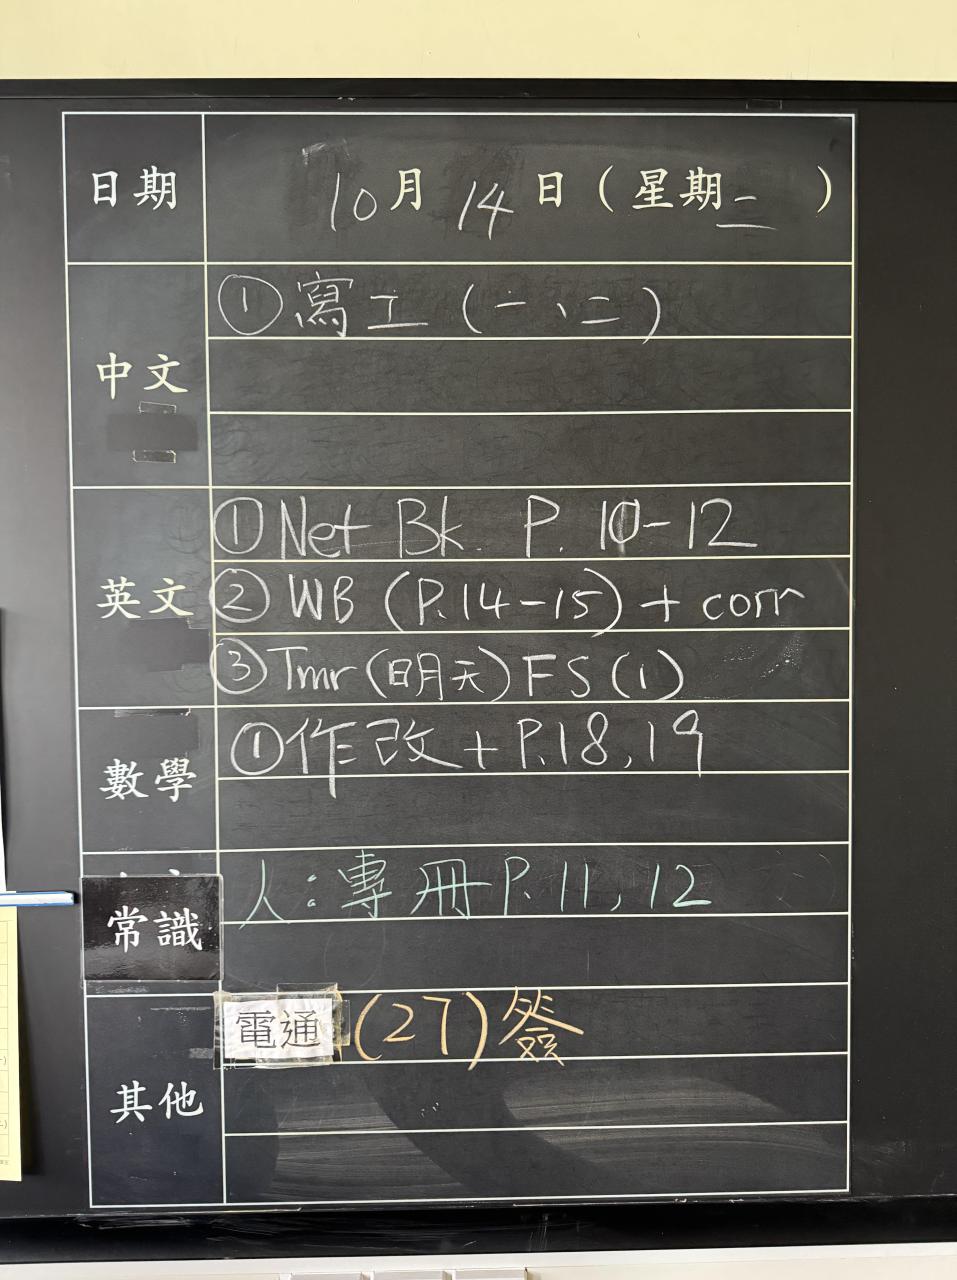 日期 10月14日(星期二)
中文 ①寫工(一、二)
英文
①Net Bk. P. 10-12
②WB (P.14-15) + corr
③Tmr(明天)FS(1)
數學 ①作改 + P.18,19
常識 人:專冊P.11, 12
其他 電通 (27)簽